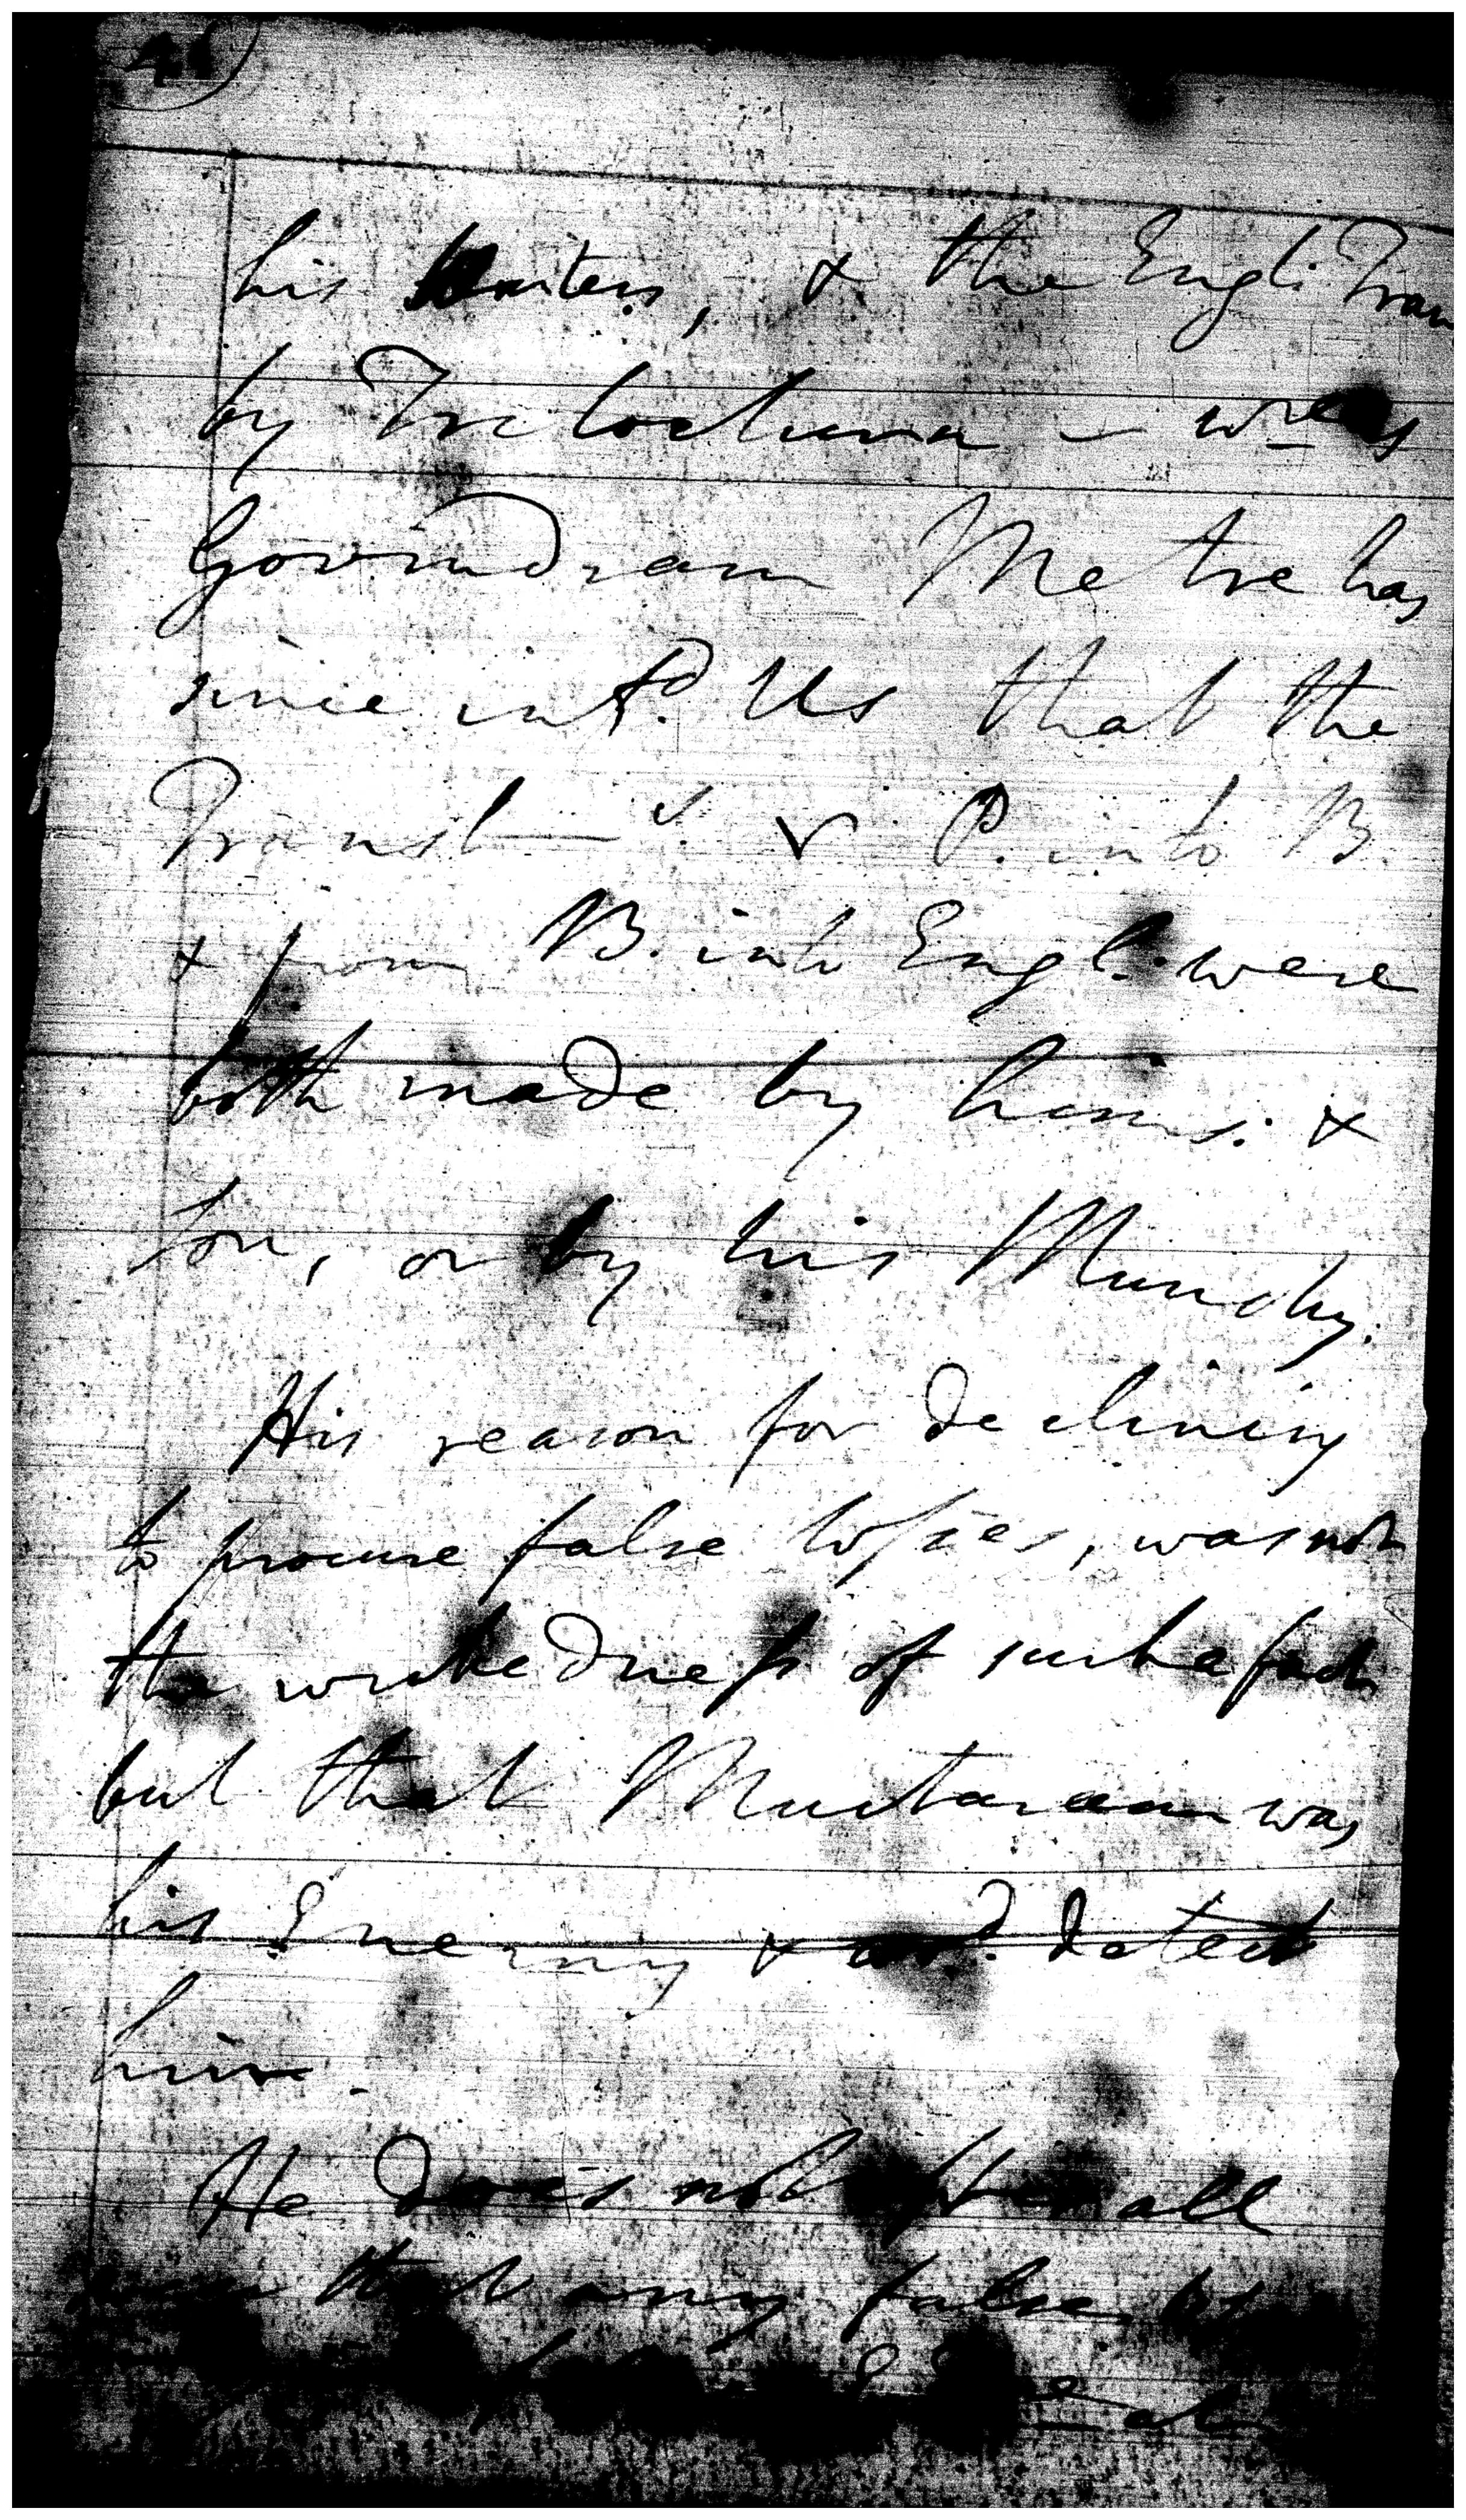 his Writers, & the Engl. Tran
by Trelochuna - wreas
Govindram Metre has
since inf.d Us that the
Transl P. into B.
& from B. into Engl. were
both made by hims. &
Son, or by his Munshy.
His reason for declining
to procure false Copies, was not
the wickedness of such a fact
but that Muctaram was
his Enemy & wd. detect
him.
He does not all
that any false